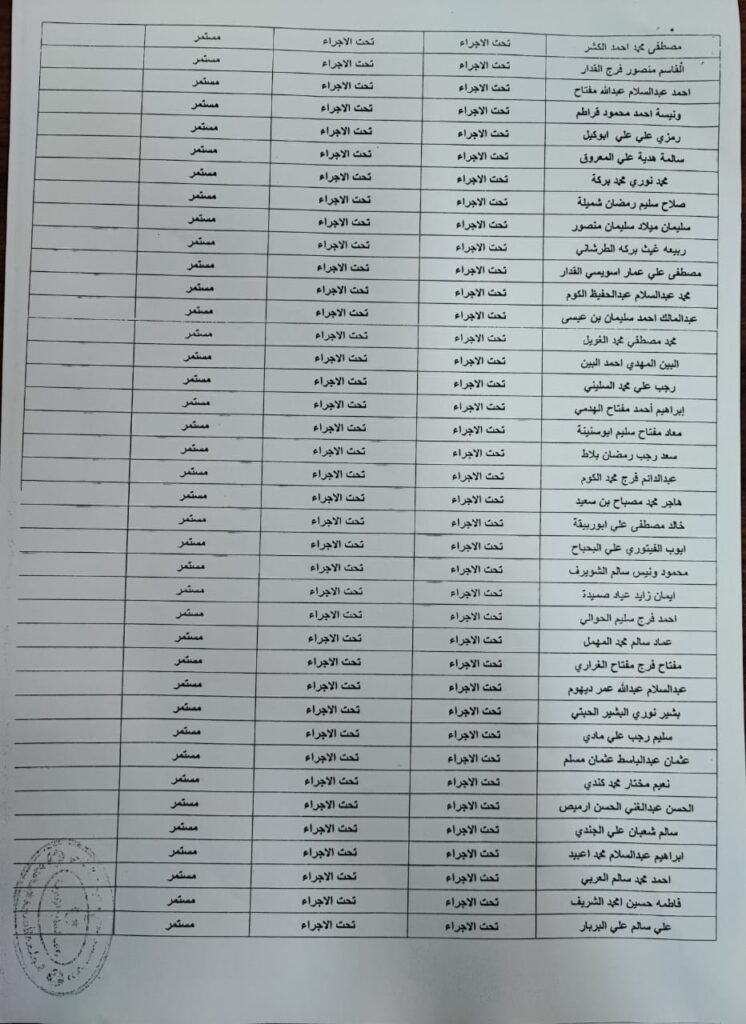 مصطفى محمد احمد الكشر تحت الاجراء تحت الاجراء مستمر
القاسم منصور فرج القدار تحت الاجراء تحت الاجراء مستمر
احمد عبدالسلام عبدالله مفتاح تحت الاجراء تحت الاجراء مستمر
ونيسة احمد محمود قراطم تحت الاجراء تحت الاجراء مستمر
رمزي علي علي ابوكيل تحت الاجراء تحت الاجراء مستمر
سالمة هدية علي المعروق تحت الاجراء تحت الاجراء مستمر
محمد نوري محمد بركة تحت الاجراء تحت الاجراء مستمر
صلاح سليم رمضان شميلة تحت الاجراء تحت الاجراء مستمر
سليمان ميلاد سليمان منصور تحت الاجراء تحت الاجراء مستمر
ربيعه غيث بركه الطرشاني تحت الاجراء تحت الاجراء مستمر
مصطفى علي عمار اسويسي القدار تحت الاجراء تحت الاجراء مستمر
محمد عبدالسلام عبدالحفيظ الكوم تحت الاجراء تحت الاجراء مستمر
عبدالمالك احمد سليمان بن عيسى تحت الاجراء تحت الاجراء مستمر
محمد مصطفي محمد الغويل تحت الاجراء تحت الاجراء مستمر
البين المهدي احمد البين تحت الاجراء تحت الاجراء مستمر
رجب علي محمد السليني تحت الاجراء تحت الاجراء مستمر
إبراهيم أحمد مفتاح الهدمي تحت الاجراء تحت الاجراء مستمر
معاد مفتاح سليم ابوسنينة تحت الاجراء تحت الاجراء مستمر
سعد رجب رمضان بلاط تحت الاجراء تحت الاجراء مستمر
عبدالدائم فرج محمد الكوم تحت الاجراء تحت الاجراء مستمر
هاجر محمد مصباح بن سعيد تحت الاجراء تحت الاجراء مستمر
خالد مصطفى علي ابوربيقة تحت الاجراء تحت الاجراء مستمر
ايوب الفيتوري علي البحباح تحت الاجراء تحت الاجراء مستمر
محمود ونيس سالم الشويرف تحت الاجراء تحت الاجراء مستمر
ايمان زايد عياد صميدة تحت الاجراء تحت الاجراء مستمر
احمد فرج سليم الحوالي تحت الاجراء تحت الاجراء مستمر
عماد سالم محمد المهمل تحت الاجراء تحت الاجراء مستمر
مفتاح فرج مفتاح الغراري تحت الاجراء تحت الاجراء مستمر
عبدالسلام عبدالله عمر ديهوم تحت الاجراء تحت الاجراء مستمر
بشير نوري البشير الحبتي تحت الاجراء تحت الاجراء مستمر
سليم رجب علي مادي تحت الاجراء تحت الاجراء مستمر
عثمان عبدالباسط عثمان مسلم تحت الاجراء تحت الاجراء مستمر
نعيم مختار محمد كندي تحت الاجراء تحت الاجراء مستمر
الحسن عبدالغني الحسن ارميص تحت الاجراء تحت الاجراء مستمر
سالم شعبان علي الجندي تحت الاجراء تحت الاجراء مستمر
ابراهيم عبدالسلام محمد اعبيد تحت الاجراء تحت الاجراء مستمر
احمد محمد سالم العربي تحت الاجراء تحت الاجراء مستمر
فاطمه حسين امحمد الشريف تحت الاجراء تحت الاجراء مستمر
علي سالم علي البربار تحت الاجراء تحت الاجراء مستمر